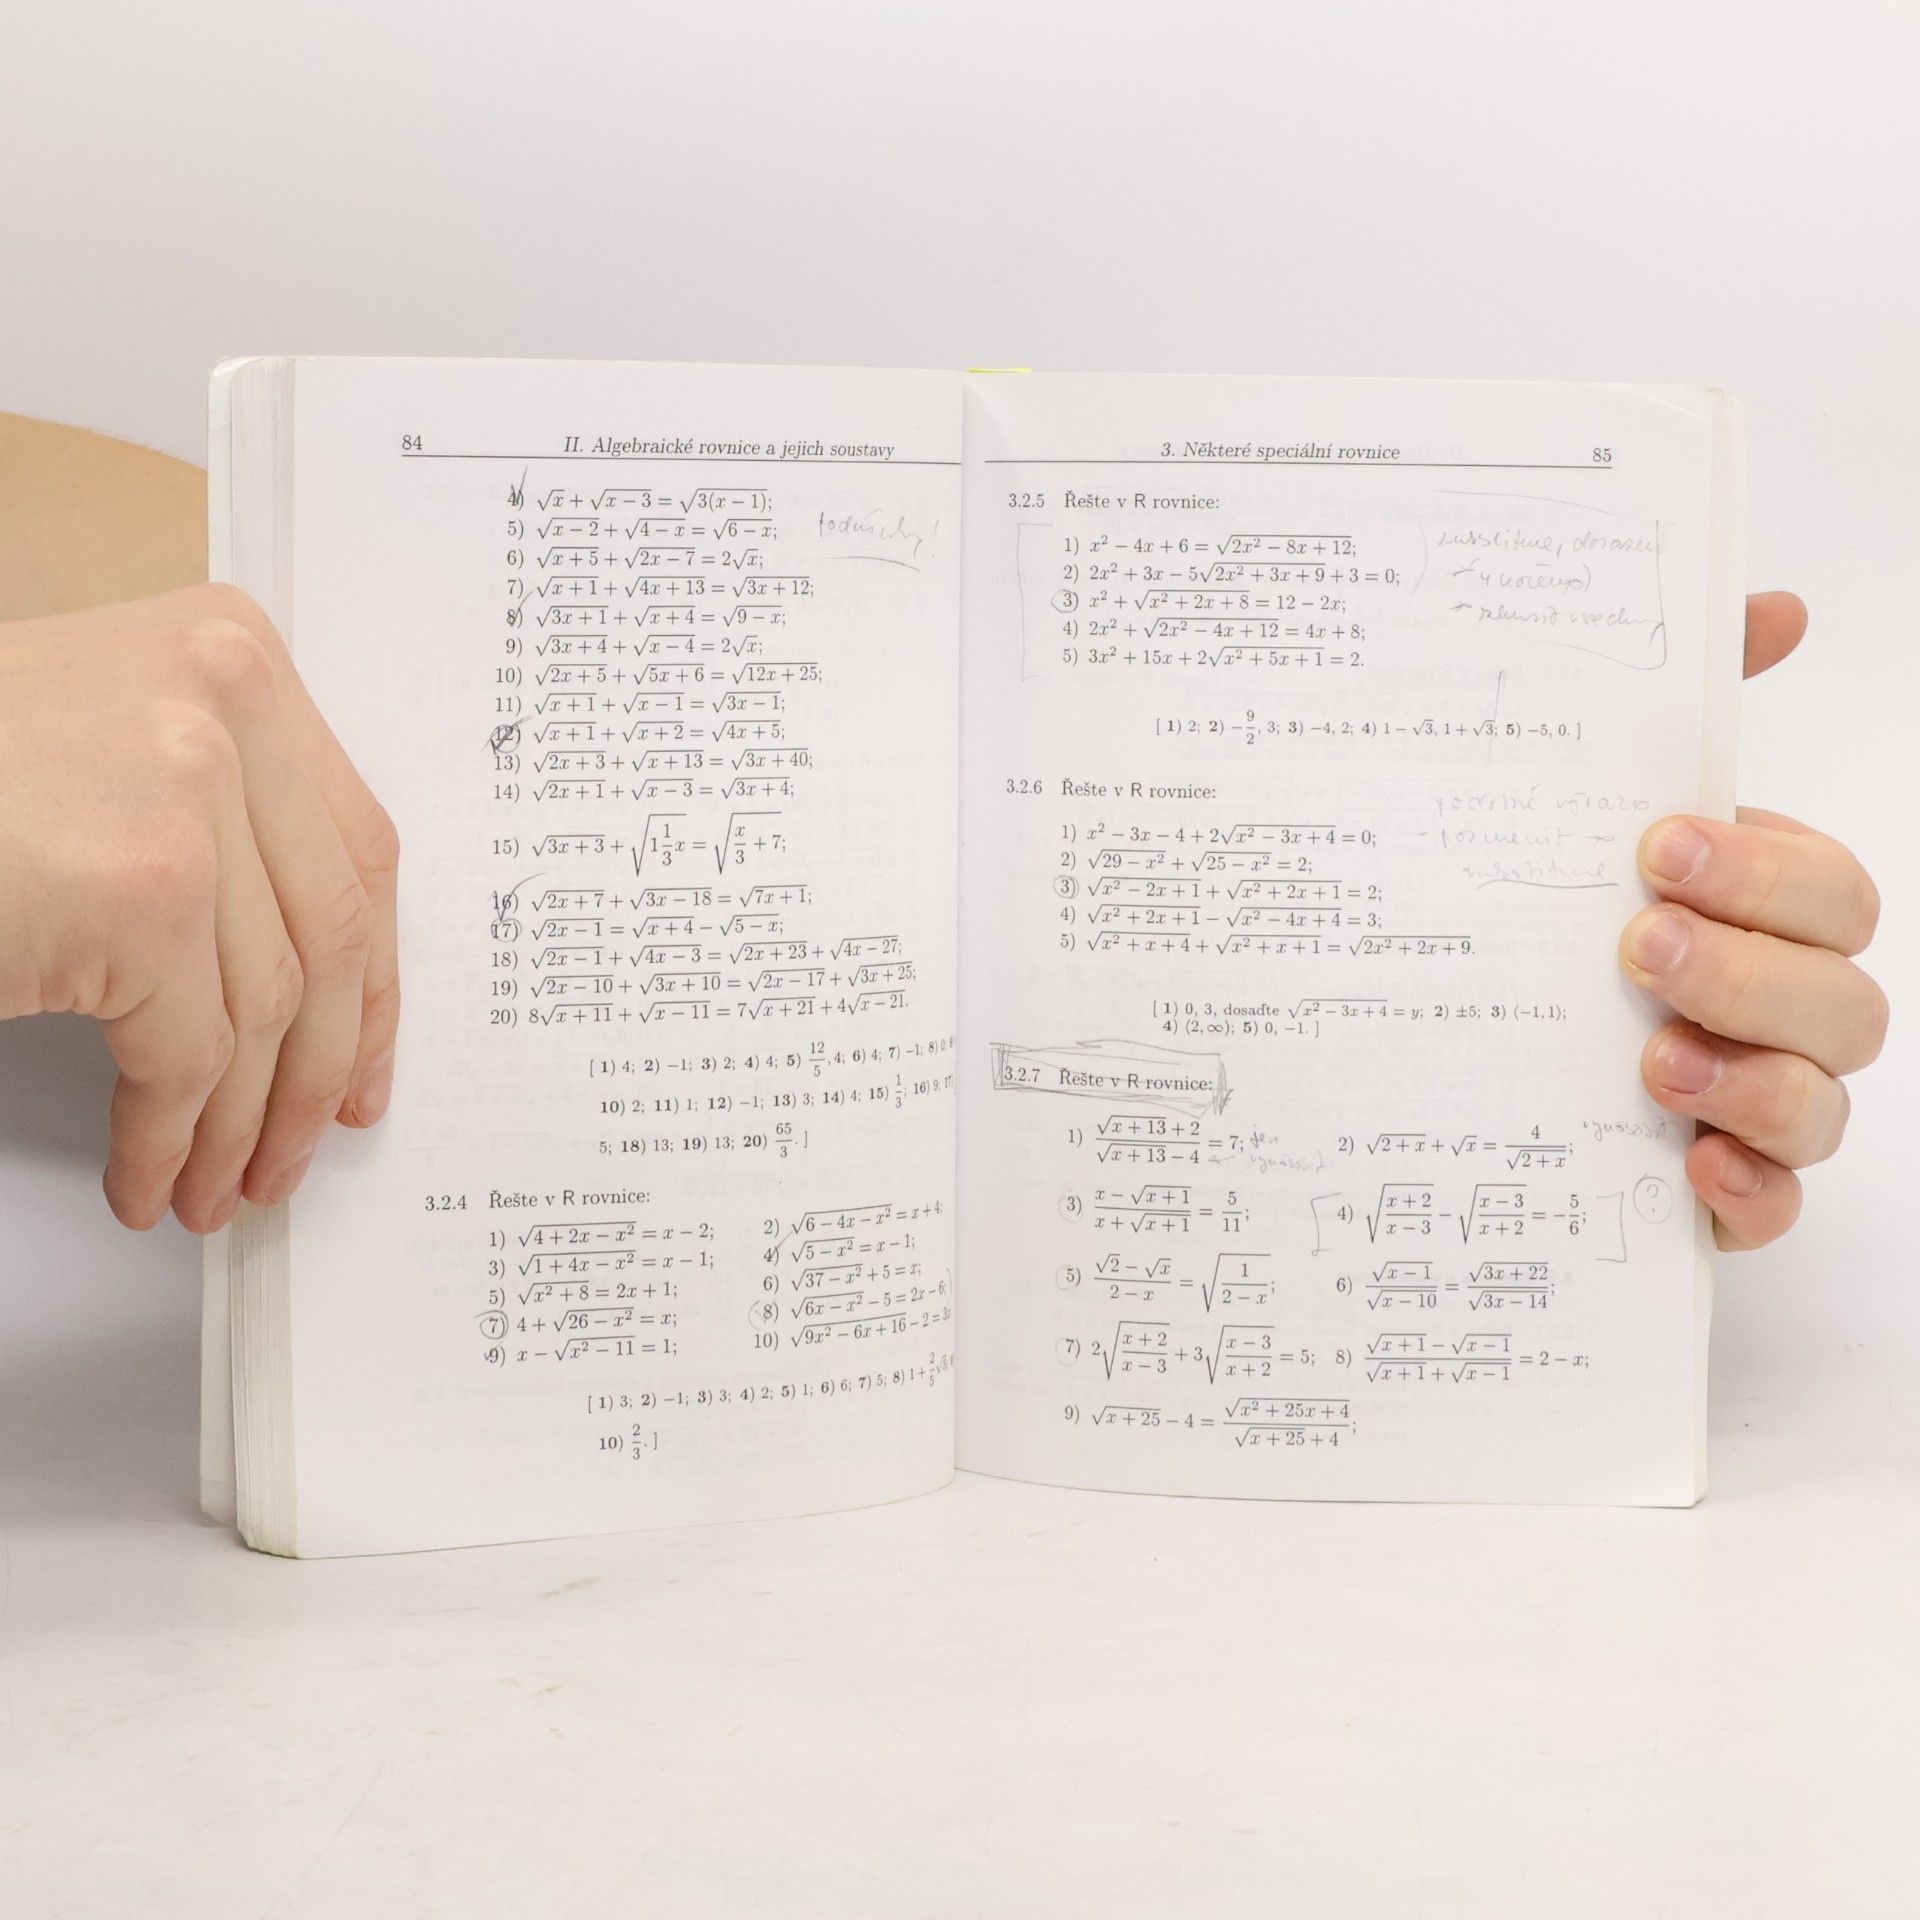 84 II. Algebraické rovnice a jejich soustavy
4) √x + √(x − 3) = √(3(x − 1));
5) √(x − 2) + √(4 − x) = √(6 − x);
6) √(x + 5) + √(2x − 7) = 2√x;
7) √(x + 1) + √(4x + 13) = √(3x + 12);
8) √(3x + 1) + √(x + 4) = √(9 − x);
9) √(3x + 4) + √(x − 4) = 2√x;
10) √(2x + 5) + √(5x + 6) = √(12x + 25);
11) √(x + 1) + √(x − 1) = √(3x − 1);
12) √(x + 1) + √(x + 2) = √(4x + 5);
13) √(2x + 3) + √(x + 13) = √(3x + 40);
14) √(2x + 1) + √(x − 3) = √(3x + 4);
15) √(3x + 3) + √(1 1/3 x) = √(x/3 + 7);
16) √(2x + 7) + √(3x − 18) = √(7x + 1);
17) √(2x − 1) = √(x + 4) − √(5 − x);
18) √(2x − 1) + √(4x − 3) = √(2x + 23) + √(4x − 27);
19) √(2x − 10) + √(3x + 10) = √(2x − 17) + √(3x + 25);
20) 8√(x + 11) + √(x − 11) = 7√(x + 21) + 4√(x − 21).
[ 1) 4; 2) −1; 3) 2; 4) 4; 5) 12/5, 4; 6) 4; 7) −1; 8) 0;
10) 2; 11) 1; 12) −1; 13) 3; 14) 4; 15) 1/3; 16) 9; 17)
5; 18) 13; 19) 13; 20) 65/3. ]
3.2.4 Řešte v R rovnice:
1) √(4 + 2x − x²) = x − 2; 2) √(6 − 4x − x²) = x + 4;
3) √(1 + 4x − x²) = x − 1; 4) √(5 − x²) = x − 1;
5) √(x² + 8) = 2x + 1; 6) √(37 − x²) + 5 = x;
7) 4 + √(26 − x²) = x; 8) √(6x − x²) − 5 = 2x − 6;
9) x − √(x² − 11) = 1; 10) √(9x² − 6x + 16) − 2 = 3x
[ 1) 3; 2) −1; 3) 3; 4) 2; 5) 1; 6) 6; 7) 5; 8) 1 + 2/5 √5;
10) 2/3. ]
3. Některé speciální rovnice 85
3.2.5 Řešte v R rovnice:
1) x² − 4x + 6 = √(2x² − 8x + 12);
2) 2x² + 3x − 5√(2x² + 3x + 9) + 3 = 0;
3) x² + √(x² + 2x + 8) = 12 − 2x;
4) 2x² + √(2x² − 4x + 12) = 4x + 8;
5) 3x² + 15x + 2√(x² + 5x + 1) = 2.
[ 1) 2; 2) −9/2, 3; 3) −4, 2; 4) 1 − √3, 1 + √3; 5) −5, 0. ]
3.2.6 Řešte v R rovnice:
1) x² − 3x − 4 + 2√(x² − 3x + 4) = 0;
2) √(29 − x²) + √(25 − x²) = 2;
3) √(x² − 2x + 1) + √(x² + 2x + 1) = 2;
4) √(x² + 2x + 1) − √(x² − 4x + 4) = 3;
5) √(x² + x + 4) + √(x² + x + 1) = √(2x² + 2x + 9).
substituce
[ 1) 0, 3, dosaďte √(x² − 3x + 4) = y; 2) ±5; 3) ⟨−1, 1⟩;
4) ⟨2, ∞); 5) 0, −1. ]
3.2.7 Řešte v R rovnice:
1) (√(x + 13) + 2)/(√(x + 13) − 4) = 7; jen 2) √(2 + x) + √x = 4/√(2 + x); vynásobit
3) (x − √(x + 1))/(x + √(x + 1)) = 5/11; 4) √((x + 2)/(x − 3)) − √((x − 3)/(x + 2)) = −5/6; ?
5) (√2 − √x)/(2 − x) = √(1/(2 − x)); 6) √(x − 1)/√(x − 10) = √(3x + 22)/√(3x − 14);
7) 2√((x + 2)/(x − 3)) + 3√((x − 3)/(x + 2)) = 5; 8) (√(x + 1) − √(x − 1))/(√(x + 1) + √(x − 1)) = 2 − x;
9) √(x + 25) − 4 = √(x² + 25x + 4)/(√(x + 25) + 4);